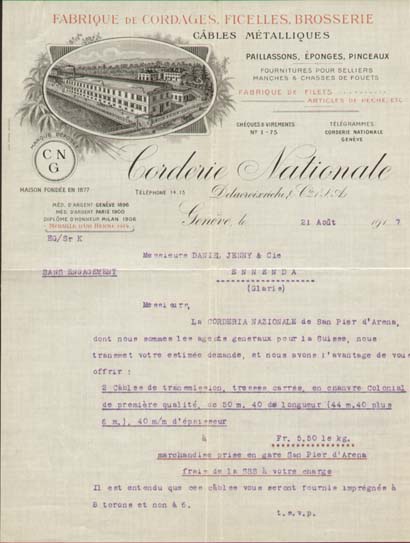 FABRIQUE DE CORDAGES, FICELLES, BROSSERIE
CÂBLES MÉTALLIQUES
PAILLASSONS, ÉPONGES, PINCEAUX
FOURNITURES POUR SELLIERS
MANCHES & CHASSES DE FOUETS
FABRIQUE DE FILETS
ARTICLES DE PÊCHE, ETC
CHÈQUES & VIREMENTS
Nº I - 75
TÉLÉGRAMMES:
CORDERIE NATIONALE
GENÈVE
MARQUE DÉPOSÉE
CN
G
MAISON FONDÉE EN 1877
Corderie Nationale
TÉLÉPHONE 14.13
& Cie S.A.
MÉD. D'ARGENT GENÈVE 1896
MÉD. D'ARGENT PARIS 1900
DIPLÔME D'HONNEUR MILAN 1906
MÉDAILLE D'OR BERNE 1914
Genève, le 21 Août 1917
EG/Sr K
Messieurs DANIEL JENNY & Cie
SANS ENGAGEMENT
ENNENDA
(Glaris)
Messieurs,
La CORDERIA NAZIONALE de San Pier d'Arena,
dont nous sommes les agents generaux pour la Suisse, nous
transmet votre estimée demande, et nous avons l'avantage de vou
offrir :
2 Câbles de transmission, tresses carrés, en chanvre Colonial
de première qualité, de 50 m. 40 de longueur (44 m.40 plus
6 m.), 40 m/m d'épaisseur
à Fr. 5,50 le kg.
marchandise prise en gare San Pier d'Arena
frais de la SSS à votre charge
Il est entendu que ces câbles vous seront fournis imprégnés à
8 torons et non à 6.
t.s.v.p.